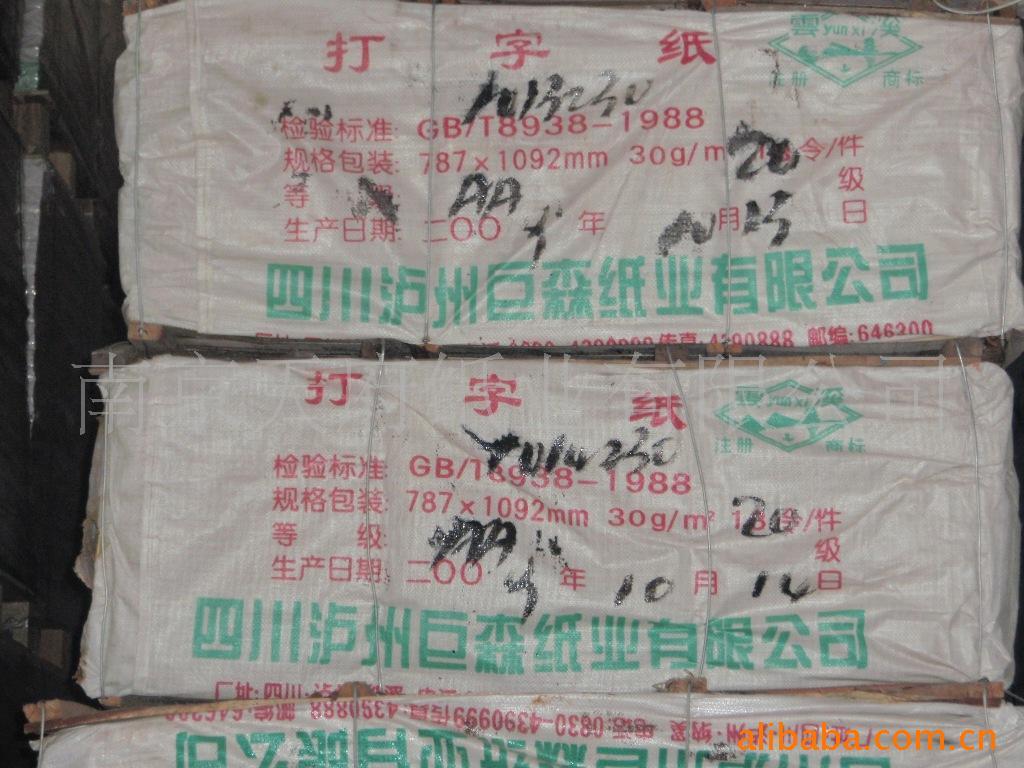 打字纸
雲yunxi溪
注册 商标
1013230
检验标准: GB/T8938-1988
规格包装: 787×1092mm 30g/m 20令/件
等 AA 级
生产日期: 二〇〇 年 月 日
四川泸州巨森纸业有限公司
传真:4390888 邮编:646300
打字纸
雲yunxi溪
注册 商标
1014230
检验标准: GB/T8938-1988
规格包装: 787×1092mm 30g/m² 20令/件
等 级: 级
生产日期: 二〇〇 年 10 月 14 日
四川泸州巨森纸业有限公司
厂址:四川·泸
电话:0830-4390999 传真:4390888 邮编:646300
四川泸州巨森纸业有限公司
alibaba.com.cn